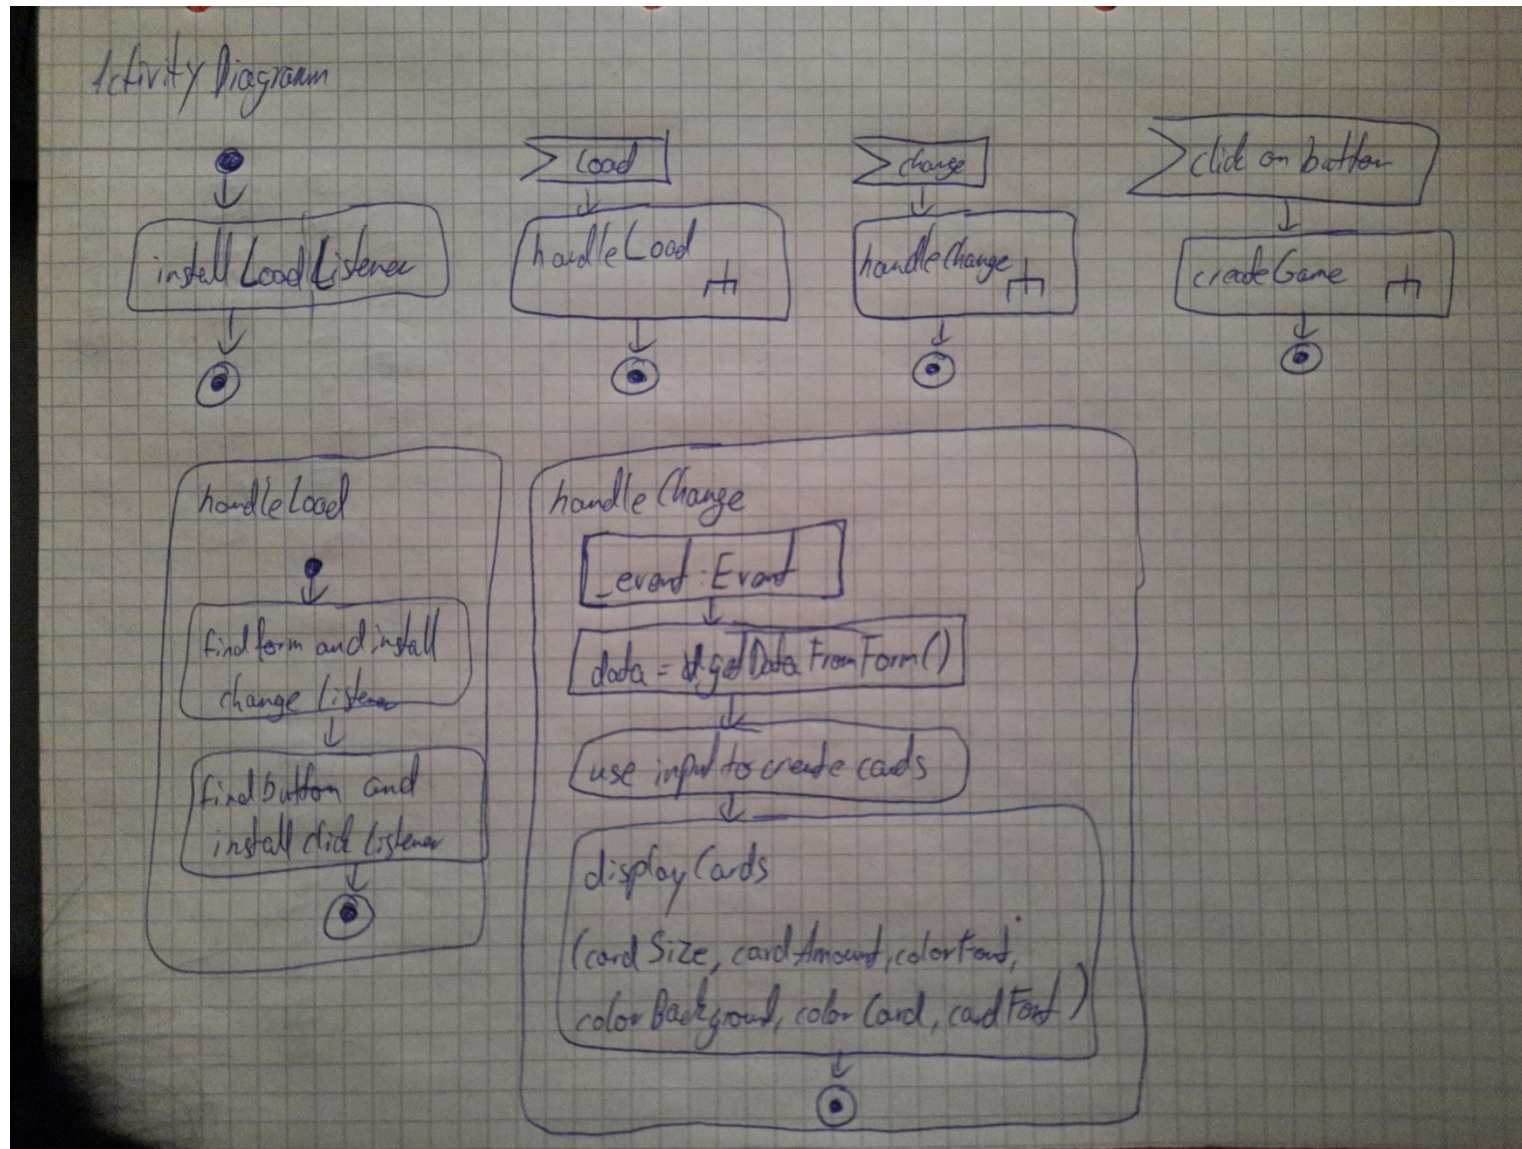 Activity Diagramm
load
change
click on button
installLoadListener
handleLoad
handleChange
createGame
handleLoad
find form and install
change listener
find button and
install click listener
handleChange
_event : Event
data = getDataFromForm()
use input to create cards
displayCards
(cardSize, cardAmount, colorFont,
colorBackground, colorCard, cardFont)